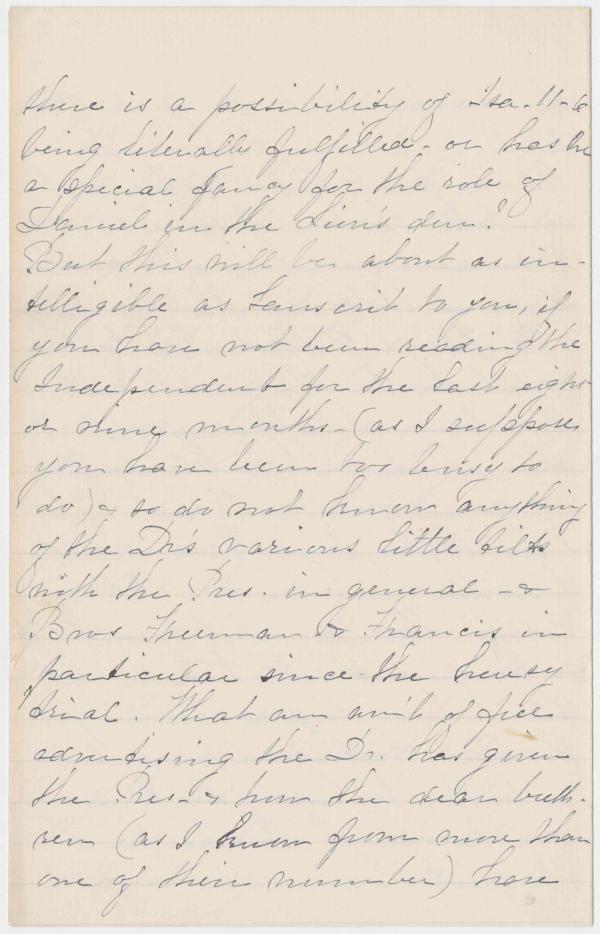 there is a possibility of Isa-11-6
being literally fulfilled - or has he
a special fancy for the role of
Daniel in the Lion's den?
But this will be about as in-
telligible as Sanscrit to you, if
you have not been reading the
Independent for the last eight
or nine months - (as I suppose
you have been too busy to
do) & so do not know anything
of the Dr's various little tilts
with the Pres. in general - &
Bros Freeman & Francis in
particular since the heresy
trial. What an am't of free
advertising the Dr. has given
the Pres - & how the dear breth-
ren (as I know from more than
one of their number) have